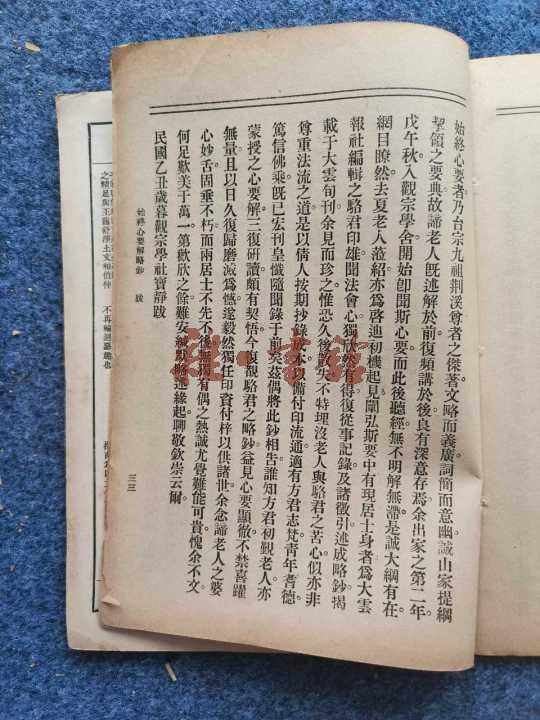 始終心要者乃台宗九祖荆溪尊者之傑著文略而義廣詞簡而意幽誠山家提綱
挈領之要典故諦老人旣述解於前復頻講於後良有深意存焉余出家之第二年
戊午秋入觀宗學舍開始卽聞斯心要而此後聽經無不明解無滯是誠大綱有在
網目瞭然去夏老人蒞紹亦爲啓迪初機起見闡弘斯要中有現居士身者爲大雲
報社編輯之駱君印雄聞法會心獨欣然有得復從事記錄及諸徵引述成略鈔揭
載于大雲旬刊余見而珍之惟恐久後散失不特埋沒老人與駱君之苦心似亦非
尊重法流之道是以倩人按期抄錄成本以備付印流通適有方君志梵靑年耆德
篤信佛乘旣已宏刊皇懺隨聞錄于前矣茲偶將此鈔相告誰知方君初覲老人亦
蒙授之心要解三復研讀頗有契悟今復覩駱君之略鈔益見心要顯徹不禁喜躍
無量且以日久復歸磨滅爲憾遂毅然獨任印資付梓以供諸世余念諦老人之婆
心妙舌固垂不朽而兩居士不先不後無獨有偶之熱誠尤覺難能可貴愧余不文
何足歎美于萬一第歡欣之餘難安緘默略述緣起聊敬欽崇云爾
民國乙丑歲暮觀宗學社寶靜跋
始終心要解略鈔 跋
三三
不再編迴聽聽也